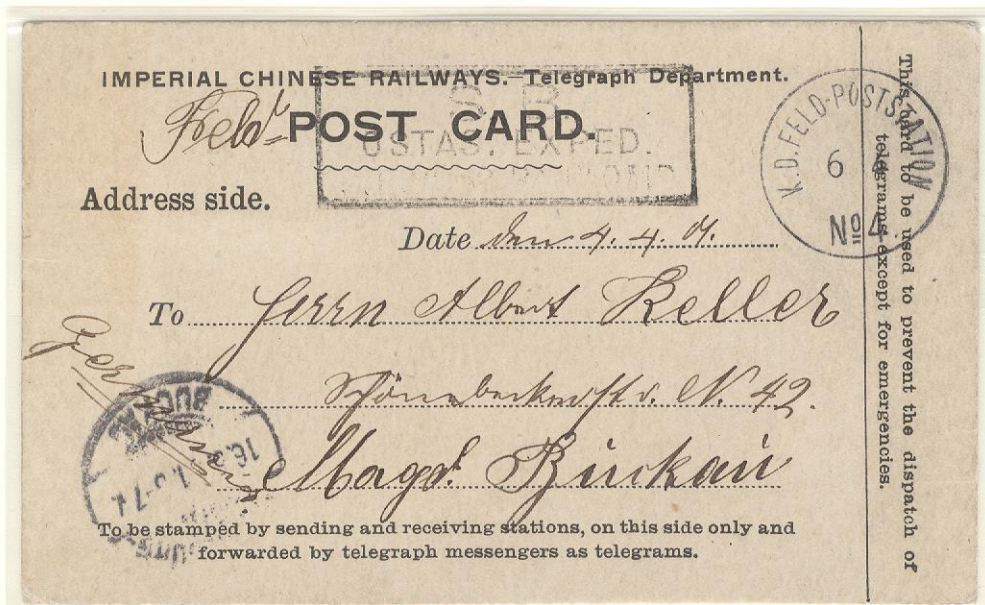 IMPERIAL CHINESE RAILWAYS.—Telegraph Department.
Feld-POST CARD.
S. B.
OSTAS. EXPED.
Address side.
K.D. FELD-POSTSTATION
6 4
No 4
Date den 4. 4. 01.
To Herrn Albert Keller
Schönebeckerstr. N. 42.
Magd. Buckau
Germania
BUCKAU
16.5.
To be stamped by sending and receiving stations, on this side only and
forwarded by telegraph messengers as telegrams.
This card to be used to prevent the dispatch of
telegrams except for emergencies.